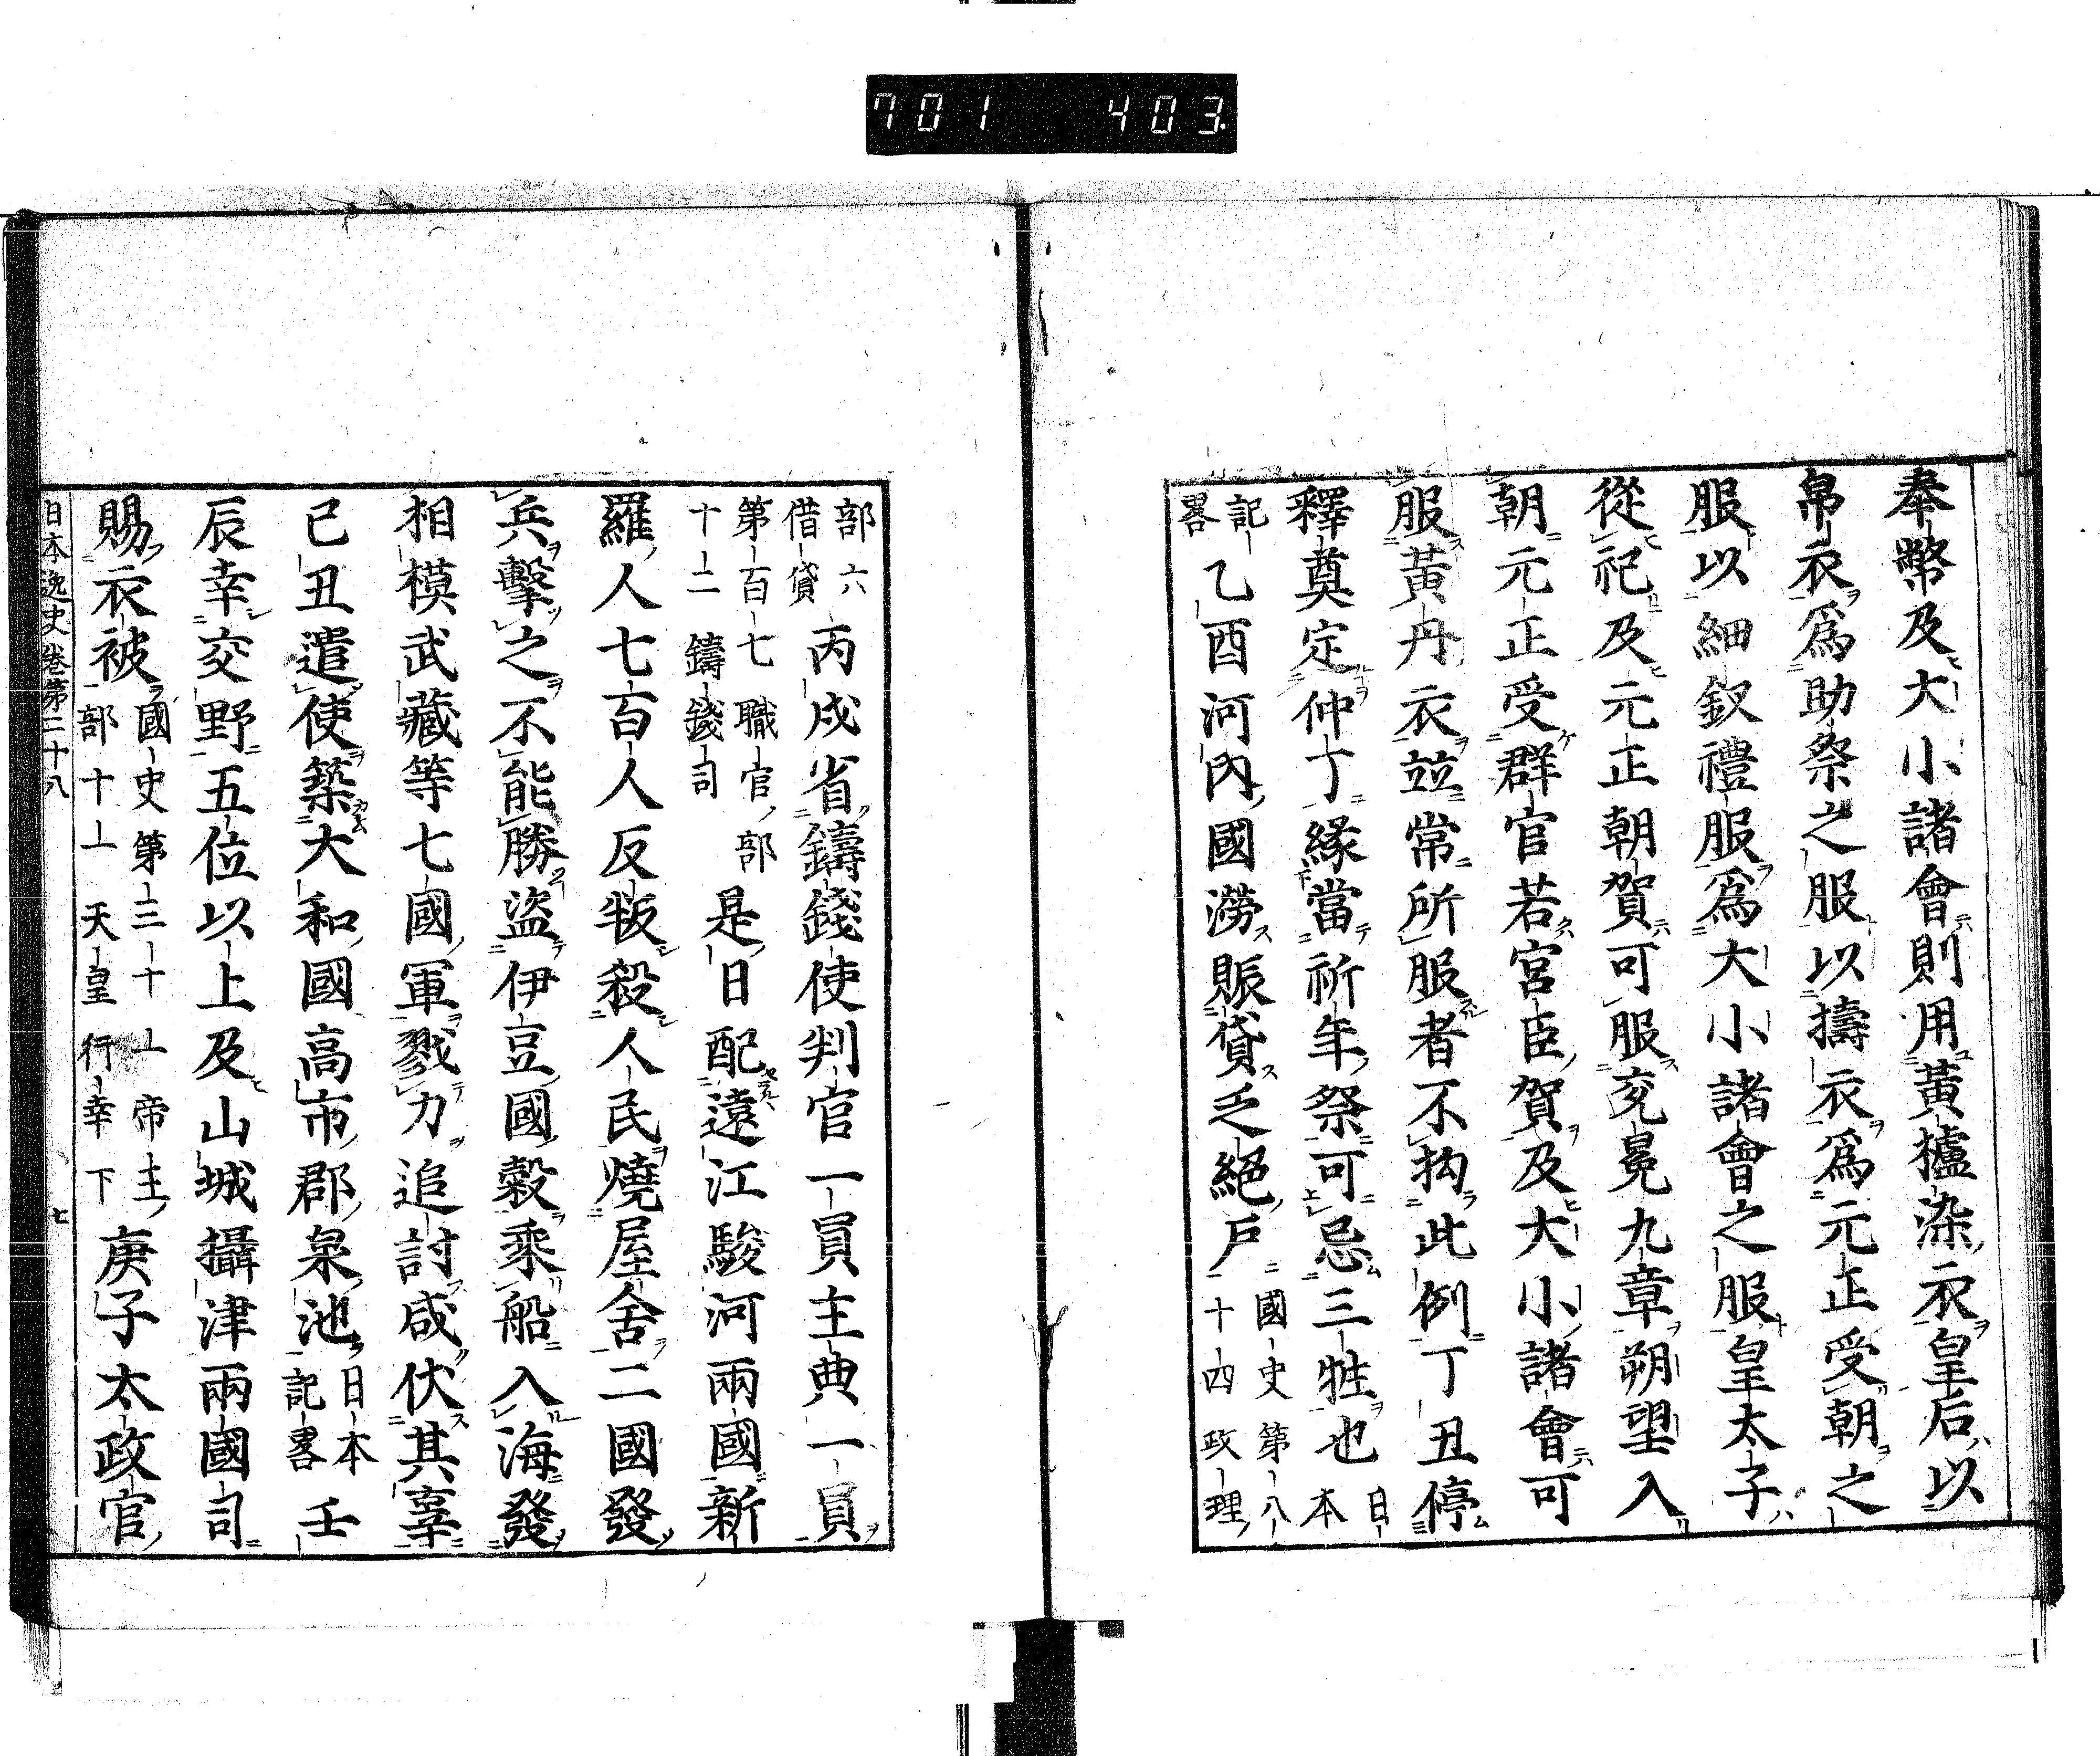 701 403
奉幣及大小諸會則用黃櫨染衣皇后以
帛衣爲助祭之服以擣衣爲元正受朝之
服以細釵禮服爲大小諸會之服皇太子
從祀及元正朝賀可服兗冕九章朔望入
朝元正受群官若宮臣賀及大小諸會可
服黃丹衣並常所服者不拘此例丁丑停
釋奠定仲丁緣當祈年祭可忌三牲也日本
記畧乙酉河內國澇賑貸乏絕戶國史第八十四政理
部六借貸丙戌省鑄錢使判官一員主典一員
第百七職官部十二鑄錢司是日配遠江駿河兩國新
羅人七百人反叛殺人民燒屋舍二國發
兵擊之不能勝盜伊豆國穀乘船入海發
相模武藏等七國軍戮力追討咸伏其辜
己丑遣使築大和國高市郡泉池日本記畧壬
辰幸交野五位以上及山城攝津兩國司
賜衣被國史第三十二帝王部十二天皇行幸下庚子太政官
日本逸史卷第二十八 七